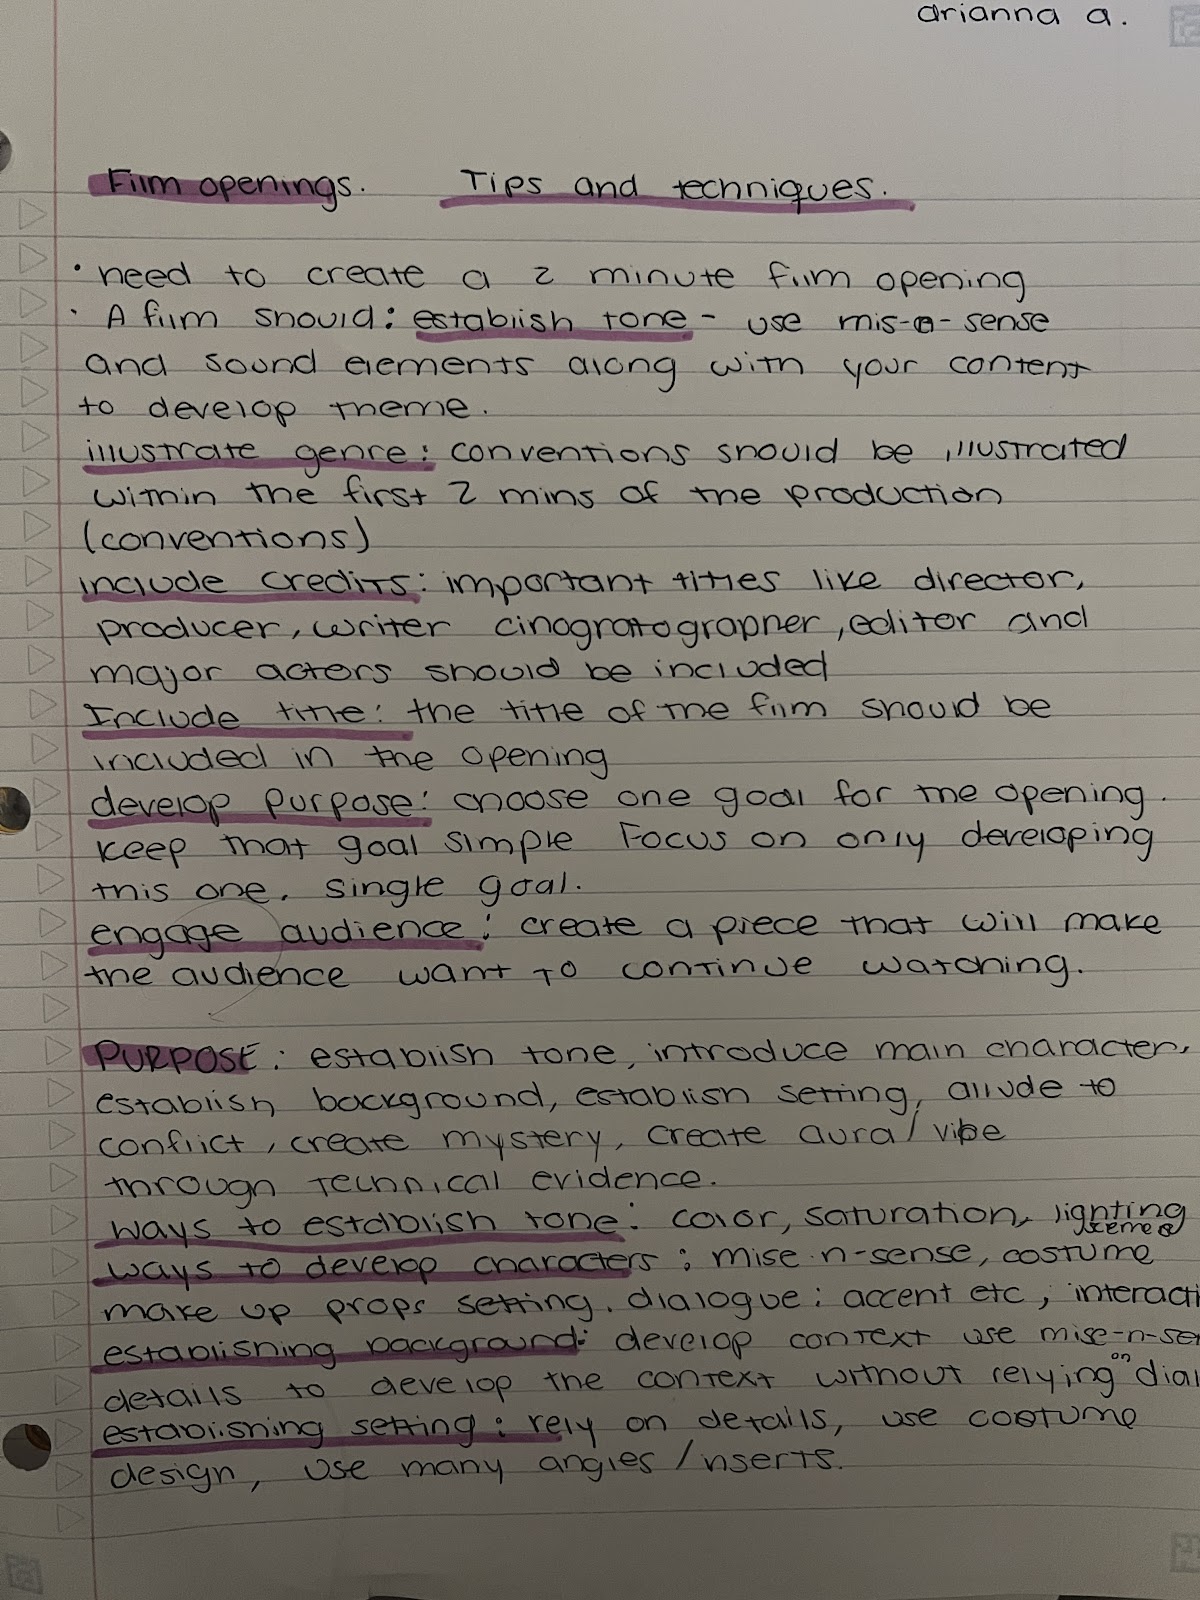 arianna a.
Film openings. Tips and techniques.
• need to create a 2 minute film opening
• A film should: establish tone - use mis-e-sense
and sound elements along with your content
to develop theme.
illustrate genre: conventions should be illustrated
within the first 2 mins of the production
(conventions)
include credits: important titles like director,
producer, writer cinogratographer, editor and
major actors should be included
Include title: the title of the film should be
included in the opening
develop purpose: choose one goal for the opening.
keep that goal simple Focus on only developing
this one, single goal.
engage audience: create a piece that will make
the audience want to continue watching.
PURPOSE: establish tone, introduce main character,
establish background, establish setting, allude to
conflict, create mystery, create aura/vibe
through technical evidence.
ways to establish tone: color, saturation, lighting
ways to develop characters: mise-n-sense, costume
make up props setting. dialogue: accent etc, interacti
establishing background: develop context use mise-n-sen
details to develop the context without relying on dial
establishing setting: rely on details, use costume
design, use many angles/inserts.